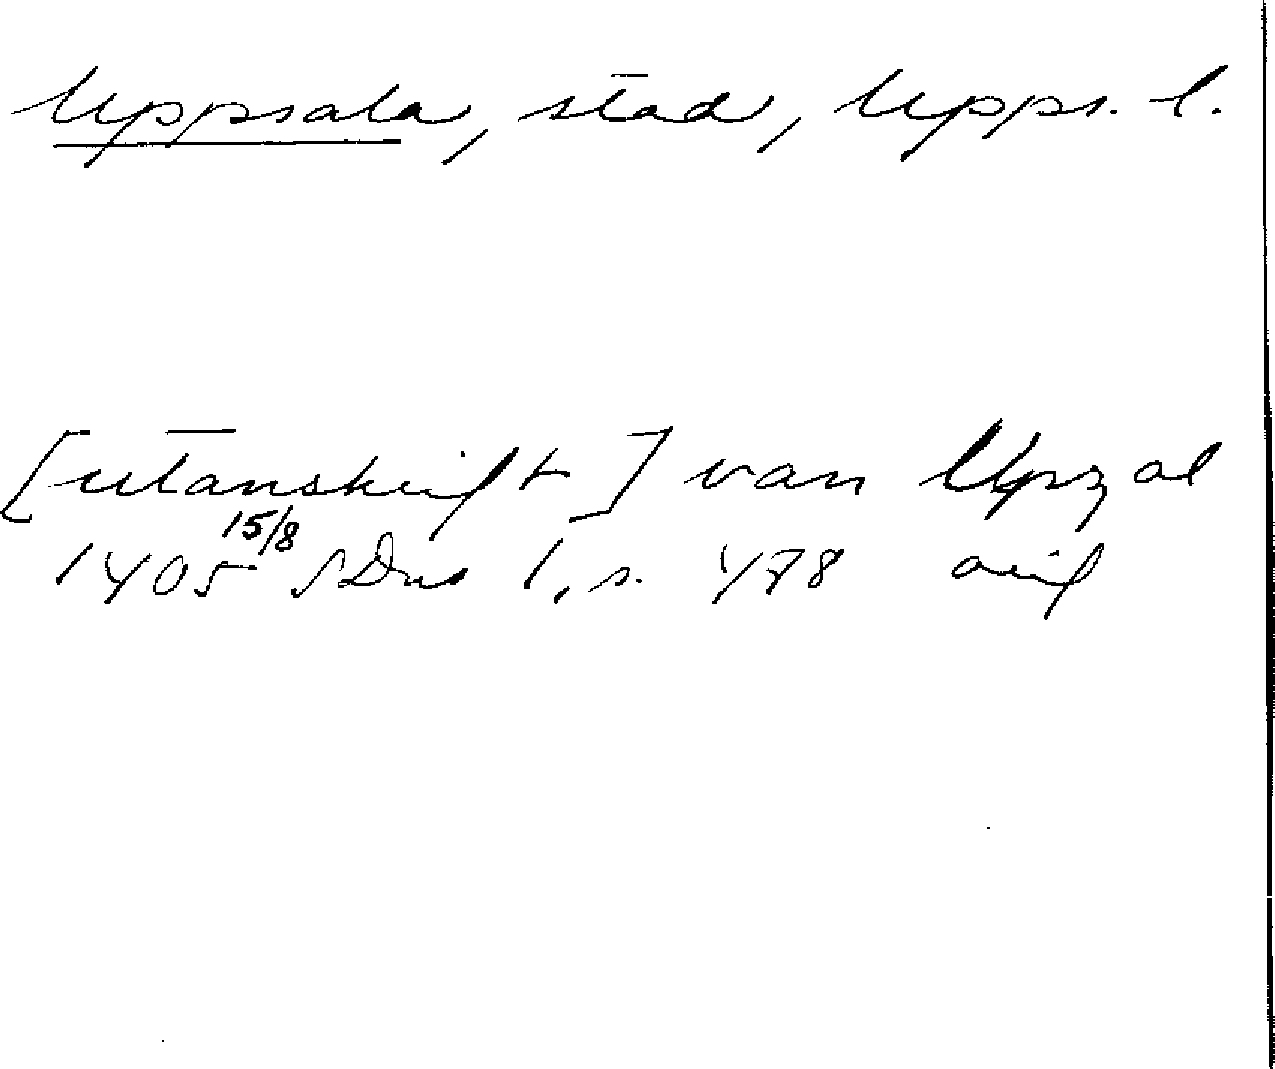 Uppsala, stad, Upps. l.
[utanskrift] van Upzal
1405 15/8 SDns 1, s. 478 avif